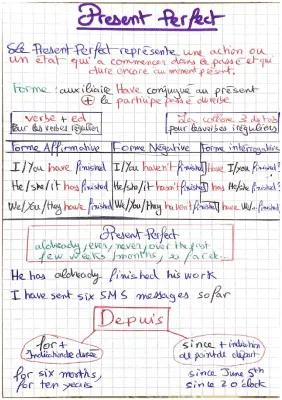 Present Perfect
Le Present Perfect représente une action ou
un état qui a commencé dans le passé et qui
dure encore au moment présent.
Forme: auxiliaire Have conjugué au présent
+ le participe passé du verbe
verbe + ed
Pour les verbes réguliers
3 des
pour les verbes irréguliers
Forme Affirmative Forme Négative Forme interrogative
I/You have finished I/You haven't finished Have I/you finished?
He/she/it has finished He/she/it hasn't finished Has He/she finished?
We/You/They have finished We/You/They haven't finished have We finished
Present Perfect
alcheady, ever, never, over the past
few weeks/months, so far...
He has alcheady finished his work
I have sent six SMS messages so far
Depuis
for +
Indication de durée
since + indication
de point de départ
for six months,
for ten years
since June 5th
since 2 o'clock